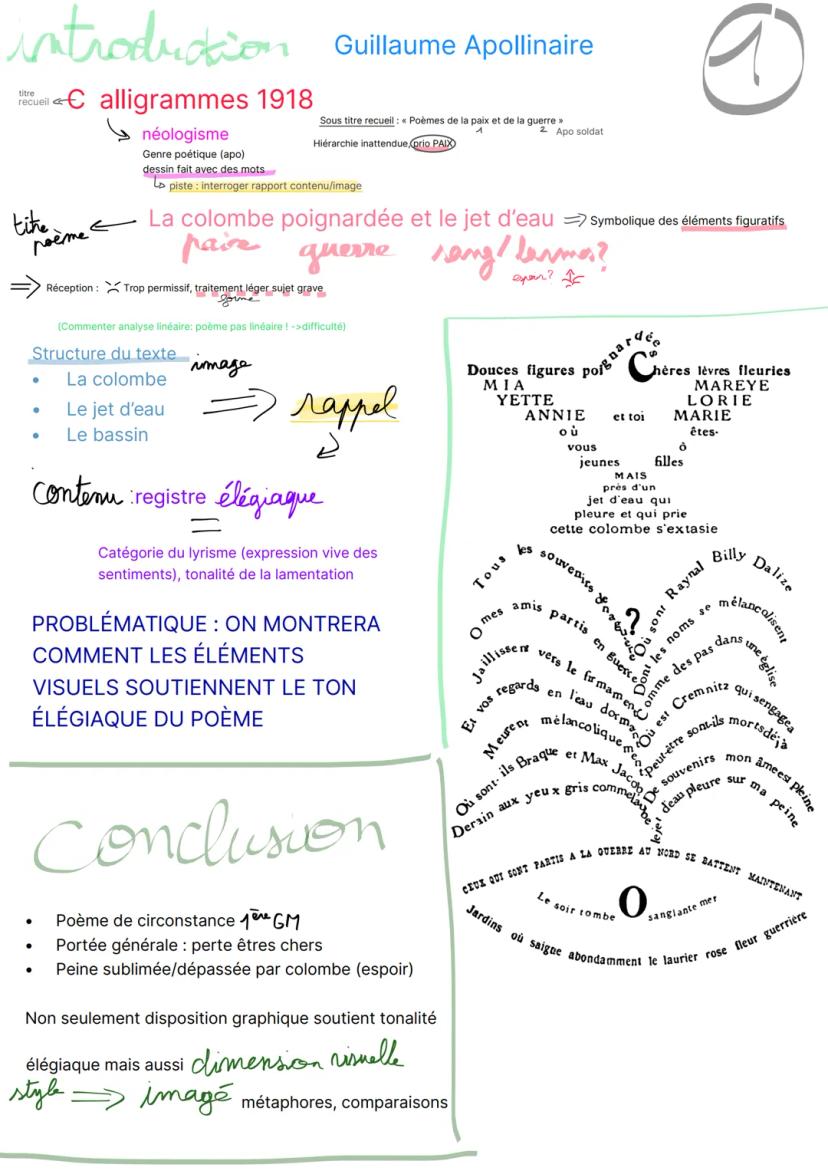 introduction
Guillaume Apollinaire
1
titre
recueil
C alligrammes 1918
Sous titre recueil : « Poèmes de la paix et de la guerre »
1 2 Apo soldat
néologisme
Hiérarchie inattendue, prio PAIX
Genre poétique (apo)
dessin fait avec des mots
piste : interroger rapport contenu/image
titre
poème
La colombe poignardée et le jet d'eau
Symbolique des éléments figuratifs
paix guerre sang/larmes?
espoir?
Réception : Trop permissif, traitement léger sujet grave
forme
(Commenter analyse linéaire: poème pas linéaire ! ->difficulté)
Structure du texte
image
La colombe
Le jet d'eau
Le bassin
rappel
contenu :registre élégiaque
=
Catégorie du lyrisme (expression vive des
sentiments), tonalité de la lamentation
PROBLÉMATIQUE : ON MONTRERA
COMMENT LES ÉLÉMENTS
VISUELS SOUTIENNENT LE TON
ÉLÉGIAQUE DU POÈME
Douces figures poignardées Chères lèvres fleuries
MIA MAREYE
YETTE LORIE
ANNIE et toi MARIE
où êtes-
vous ô
jeunes filles
MAIS
près d'un
jet d'eau qui
pleure et qui prie
cette colombe s'extasie
Tous les souvenirs de naguère
O mes amis partis en guerre
Jaillissent vers le firmament
Et vos regards en l'eau dormant
Meurent mélancoliquement
Où sont-ils Braque et Max Jacob
Derain aux yeux gris comme l'aube
?
Où sont Raynal Billy Dalize
Dont les noms se mélancolisent
Comme des pas dans une église
Où est Cremnitz qui s'engagea
Peut-être sont-ils morts déjà
De souvenirs mon âme est pleine
Le jet d'eau pleure sur ma peine
CEUX QUI SONT PARTIS A LA GUERRE AU NORD SE BATTENT MAINTENANT
Le soir tombe O sanglante mer
Jardins où saigne abondamment le laurier rose fleur guerrière
Conclusion
Poème de circonstance 1ère GM
Portée générale : perte êtres chers
Peine sublimée/dépassée par colombe (espoir)
Non seulement disposition graphique soutient tonalité
élégiaque mais aussi dimension visuelle
style imagé métaphores, comparaisons